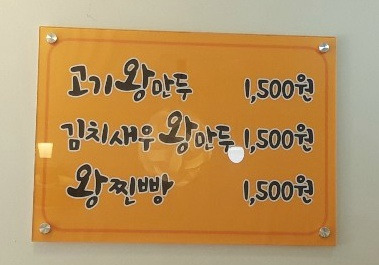 고기왕만두 1,500원
김치새우왕만두 1,500원
왕찐빵 1,500원